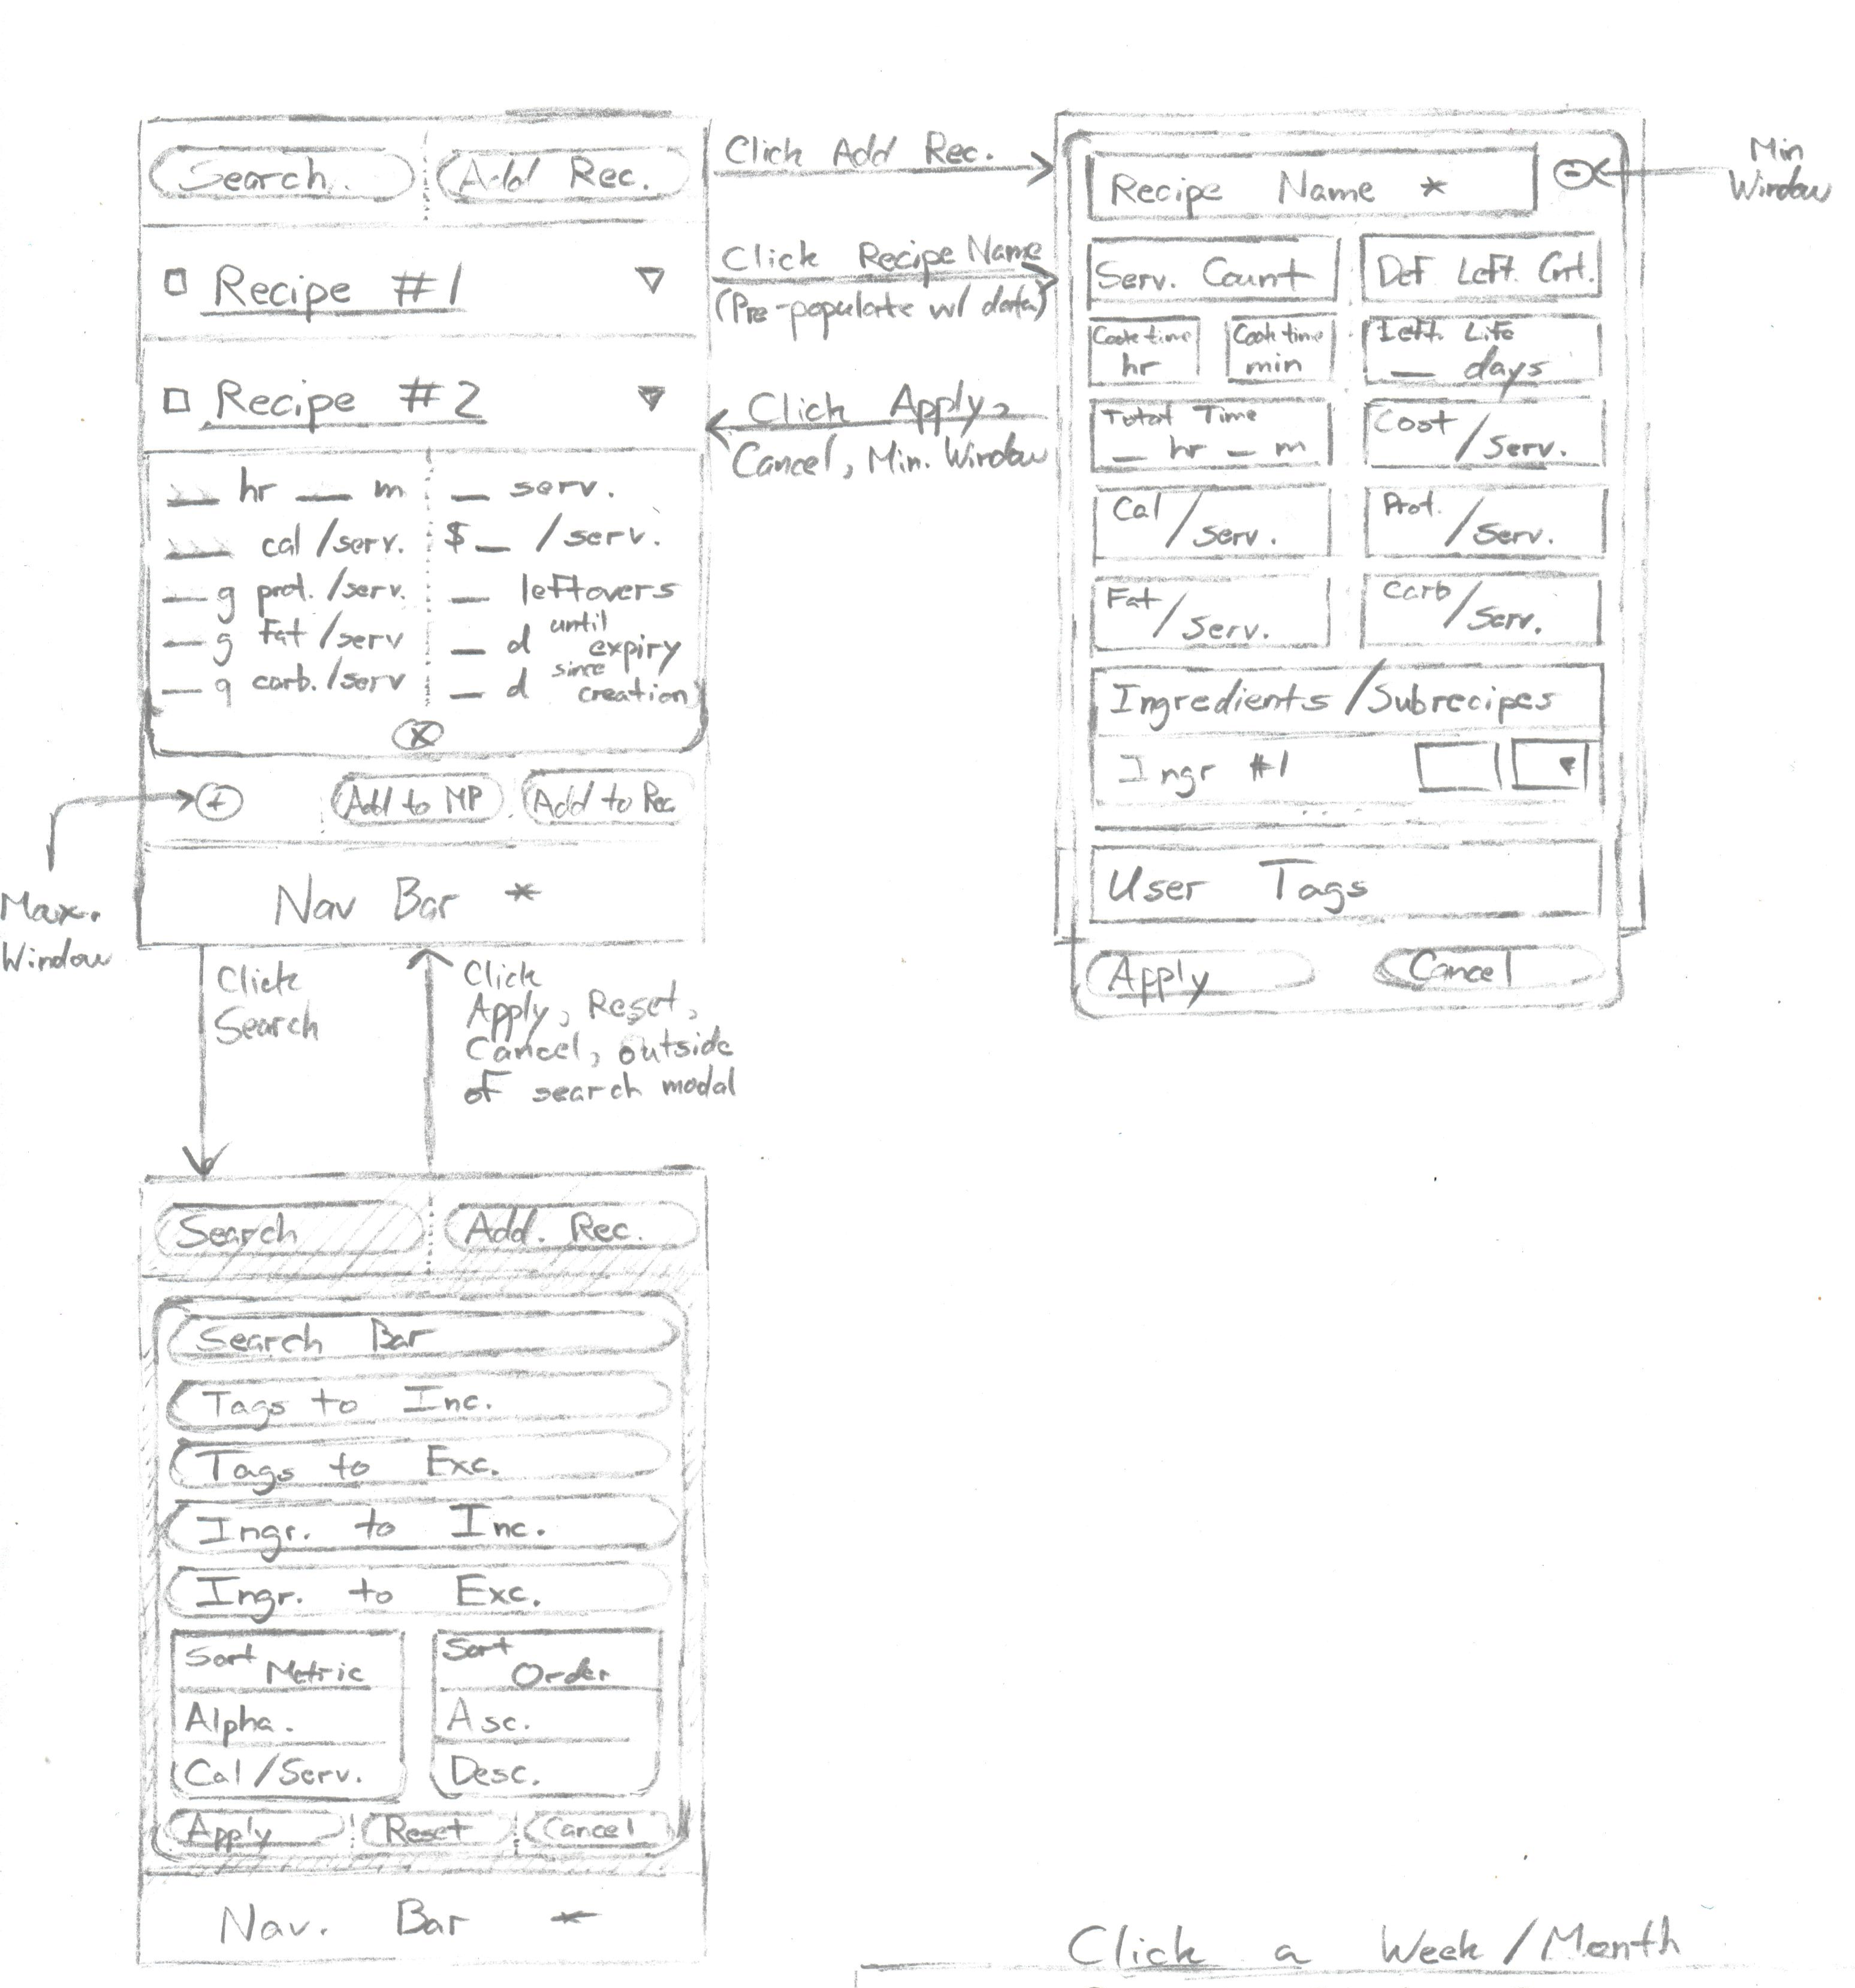 Search
Add Rec.
Recipe #1
Recipe #2
__ hr __ m
__ serv.
__ cal /serv.
$ __ /serv.
__ g prot. /serv.
__ leftovers
__ g Fat /serv
__ d until expiry
__ g carb. /serv
__ d since creation
X
+
Add to MP
Add to Rec.
Nav Bar *
Max.
Window
Click Add Rec.
Click Recipe Name
(Pre-populate w/ data)
Click Apply,
Cancel, Min. Window
Recipe Name *
-
Min
Window
Serv. Count
Def Left. Cnt.
Cook time
hr
Cook time
min
Left. Life
__ days
Total Time
__ hr __ m
Cost /serv.
Cal /serv.
Prot. /serv.
Fat /serv.
Carb /serv.
Ingredients /Subrecipes
Ingr #1
User Tags
Apply
Cancel
Click
Search
Click
Apply, Reset,
Cancel, outside
of search modal
Search
Add. Rec.
Search Bar
Tags to Inc.
Tags to Exc.
Ingr. to Inc.
Ingr. to Exc.
Sort Metric
Alpha.
Cal /Serv.
Sort Order
Asc.
Desc.
Apply
Reset
Cancel
Nav. Bar *
Click a Week /Month